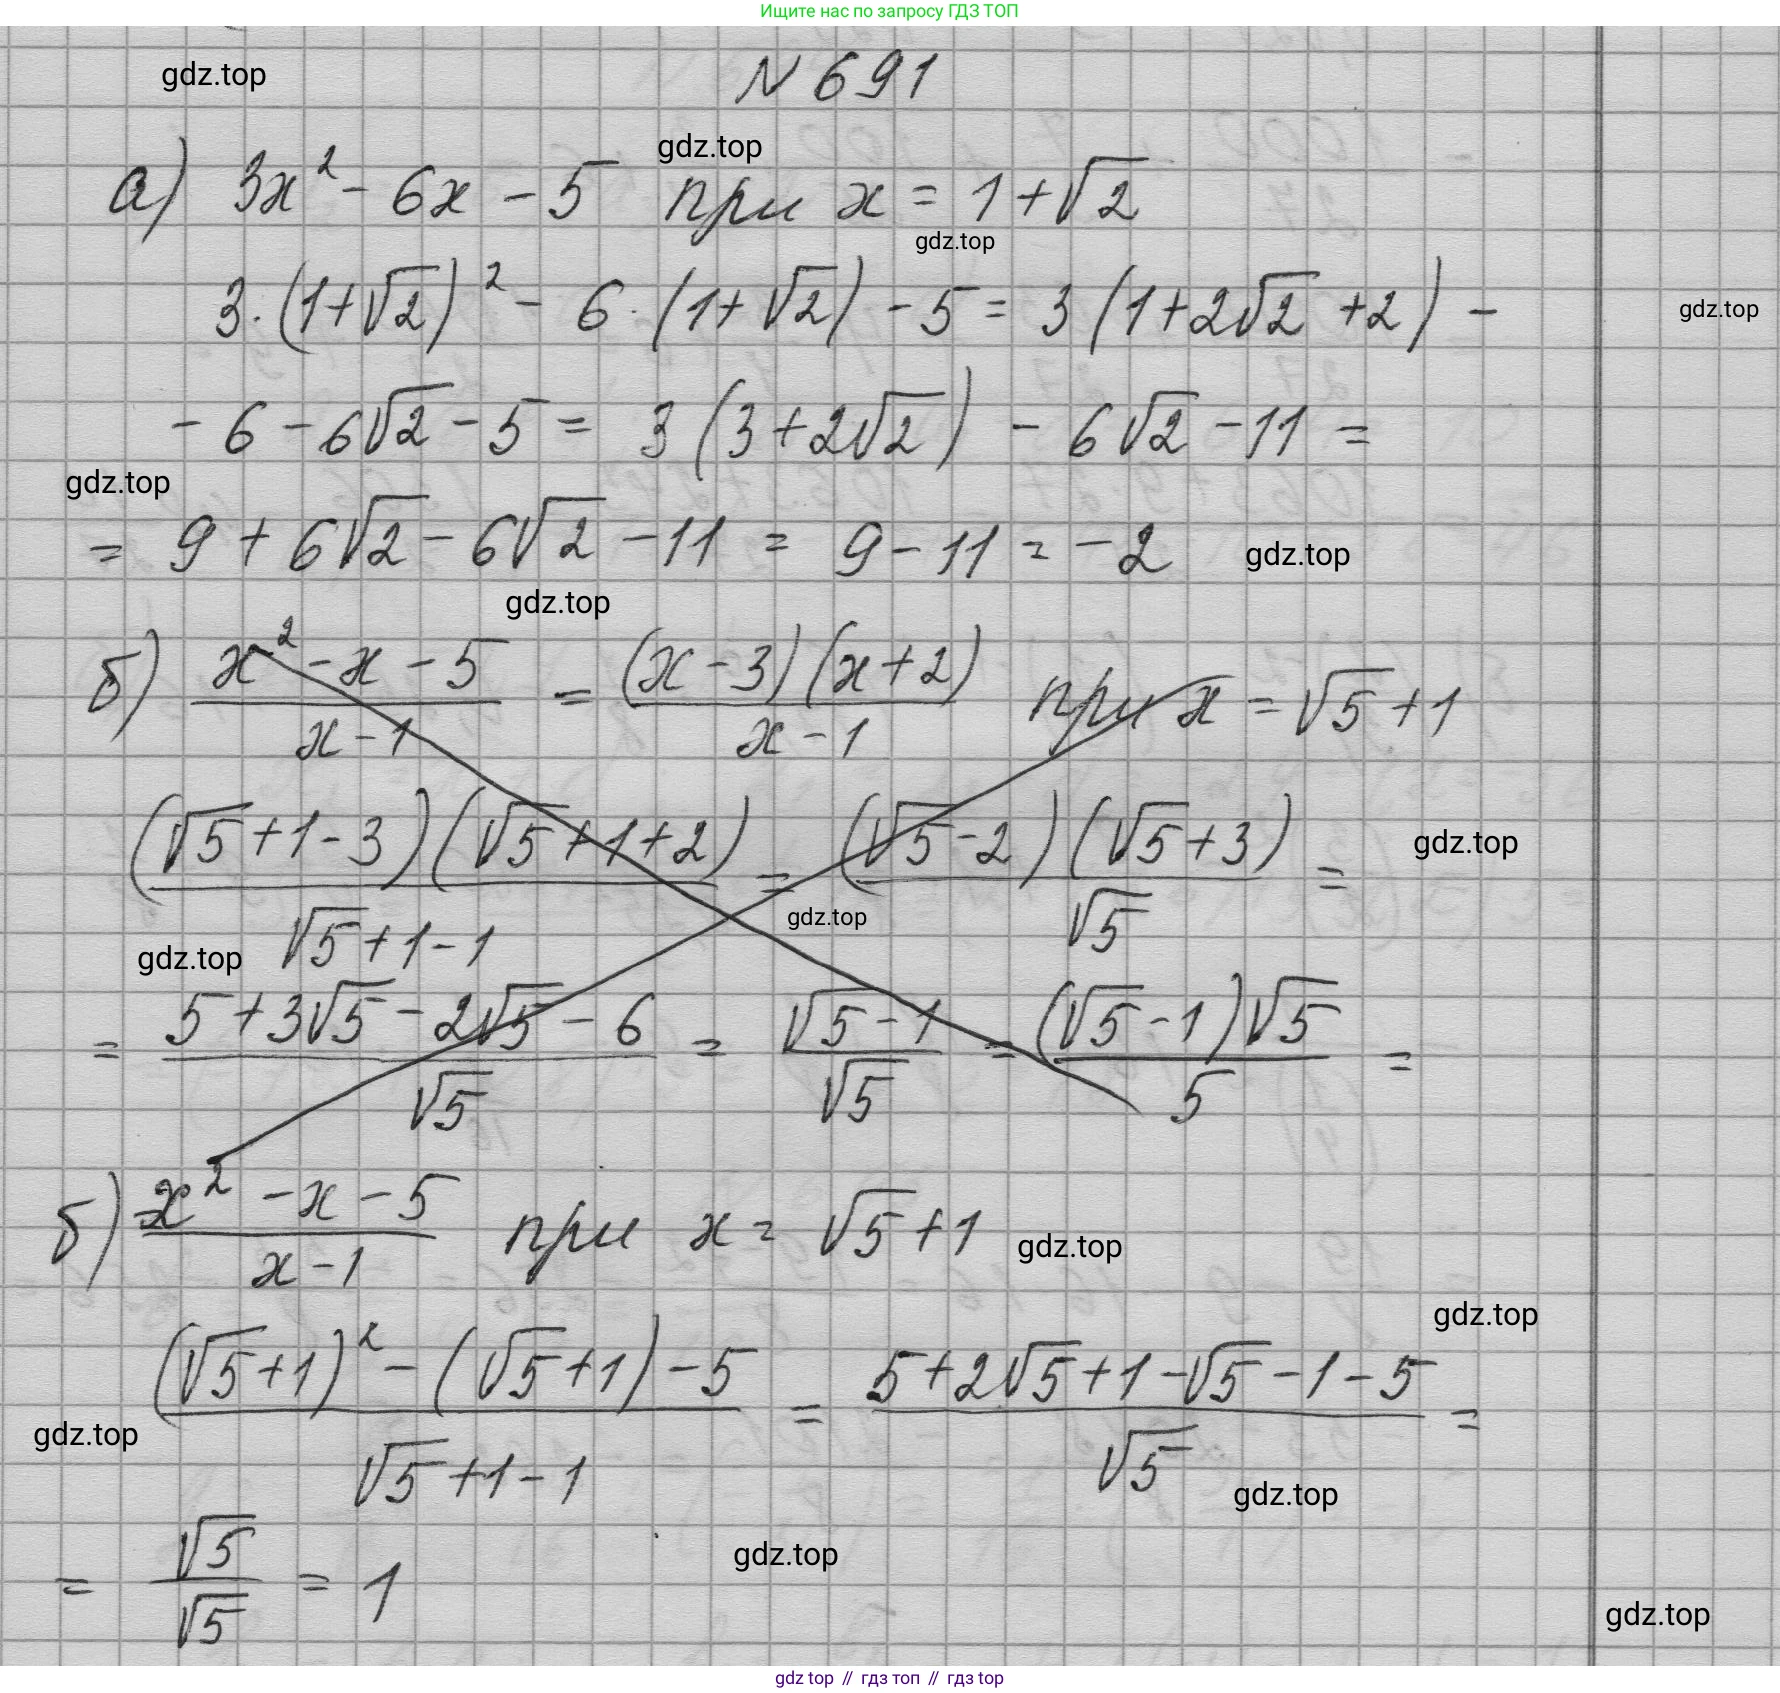 Ищите нас по запросу ГДЗ ТОП
N 691
gdz.top
gdz.top
а) 3x² - 6x - 5 при x = 1 + √2
gdz.top
3·(1+√2)² - 6·(1+√2) - 5 = 3(1+2√2+2) -
gdz.top
- 6 - 6√2 - 5 = 3(3+2√2) - 6√2 - 11 =
gdz.top
= 9 + 6√2 - 6√2 - 11 = 9 - 11 = -2
gdz.top
gdz.top
б) (x² - x - 5)/(x - 1) = ((x - 3)(x + 2))/(x - 1) при x = √5 + 1
((√5+1-3)(√5+1+2))/(√5+1-1) = ((√5-2)(√5+3))/√5 =
gdz.top
gdz.top
gdz.top
= (5+3√5-2√5-6)/√5 = (√5-1)/√5 = ((√5-1)√5)/5 =
б) (x² - x - 5)/(x - 1) при x = √5 + 1
gdz.top
gdz.top
((√5+1)² - (√5+1) - 5)/(√5+1-1) = (5+2√5+1-√5-1-5)/√5 =
gdz.top
gdz.top
= √5/√5 = 1
gdz.top
gdz.top
gdz top // гдз топ // гдз top